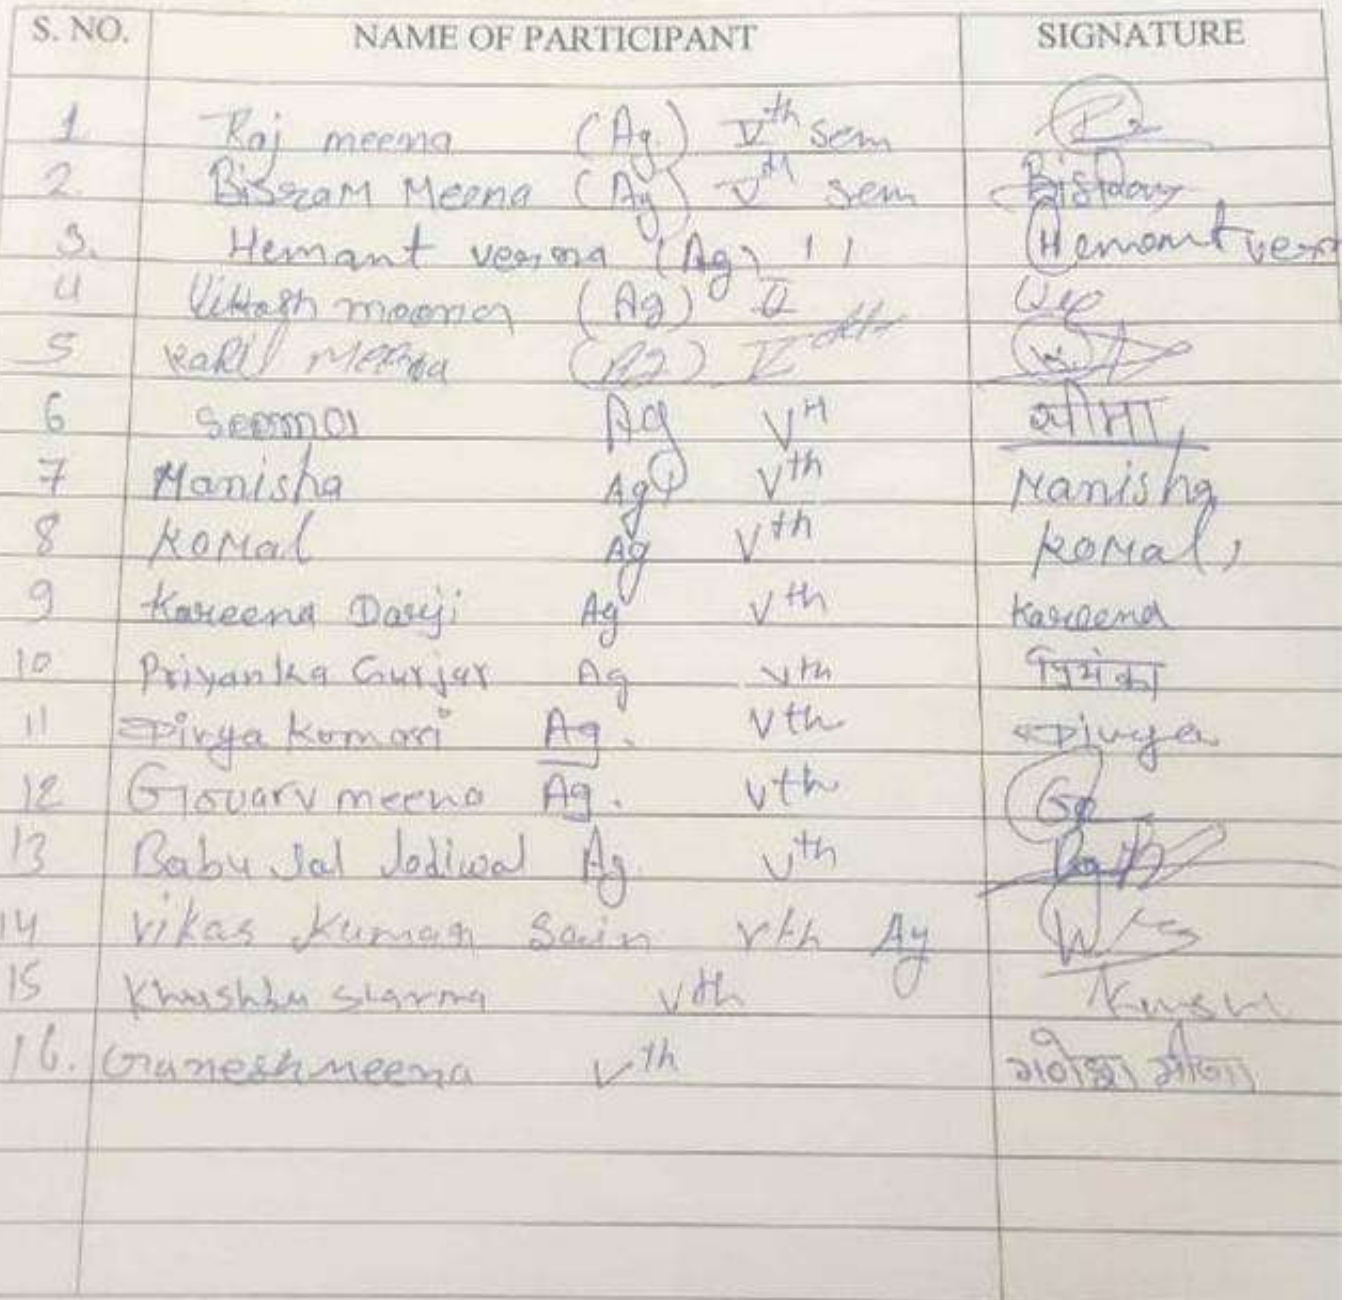 S. NO. NAME OF PARTICIPANT SIGNATURE
1 Raj meena (Ag) Vth sem
2 Bisram Meena (Ag) Vth sem
3. Hemant verma (Ag) 11 Hemant ver
4 Vikash meena (Ag) V
5 Meena Vth
6 Seema Ag Vth सीमा
7 Manisha Ag Vth Manisha
8 Komal Ag Vth Komal
9 Kareena Darji Ag Vth Kareena
10 Priyanka Gurjar Ag Vth प्रियंका
11 Divya Komari Ag. Vth Divya
12 meena Ag. Vth
13 Babu lal Ag Vth
14 Vikas Kumar Sain Vth Ag
15 Khushbu Sharma Vth Kush
16. Ganesh meena Vth गणेश मीणा